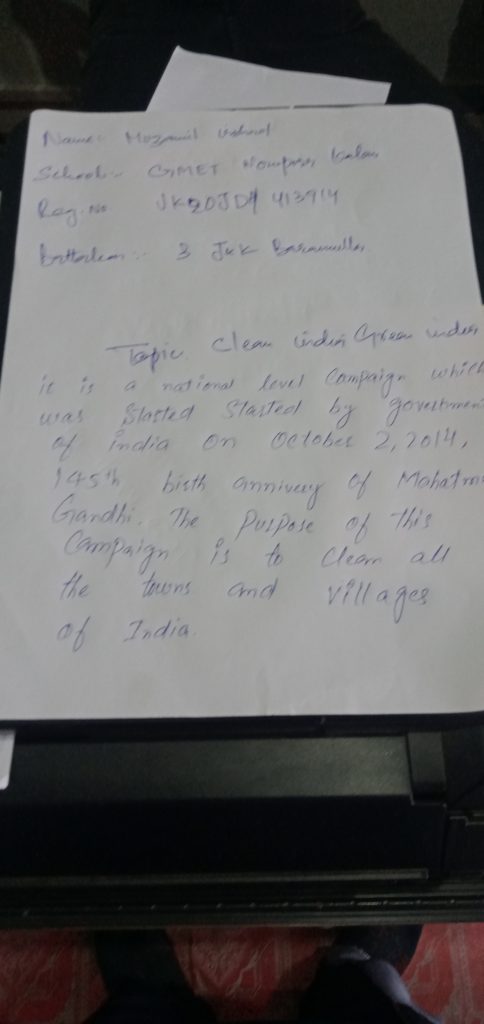 Name:- Mozamil
School:- GMET Nowpora Kalan
Reg. No JK20JDA 413914
Battalion:- 3 J&K Baramulla
Topic. Clean india Green india
it is a national level Campaign which
was Started Started by government
of india on October 2, 2014,
145th birth annivery of Mahatma
Gandhi. The Purpose of This
Campaign is to Clean all
the towns and villages
of India.